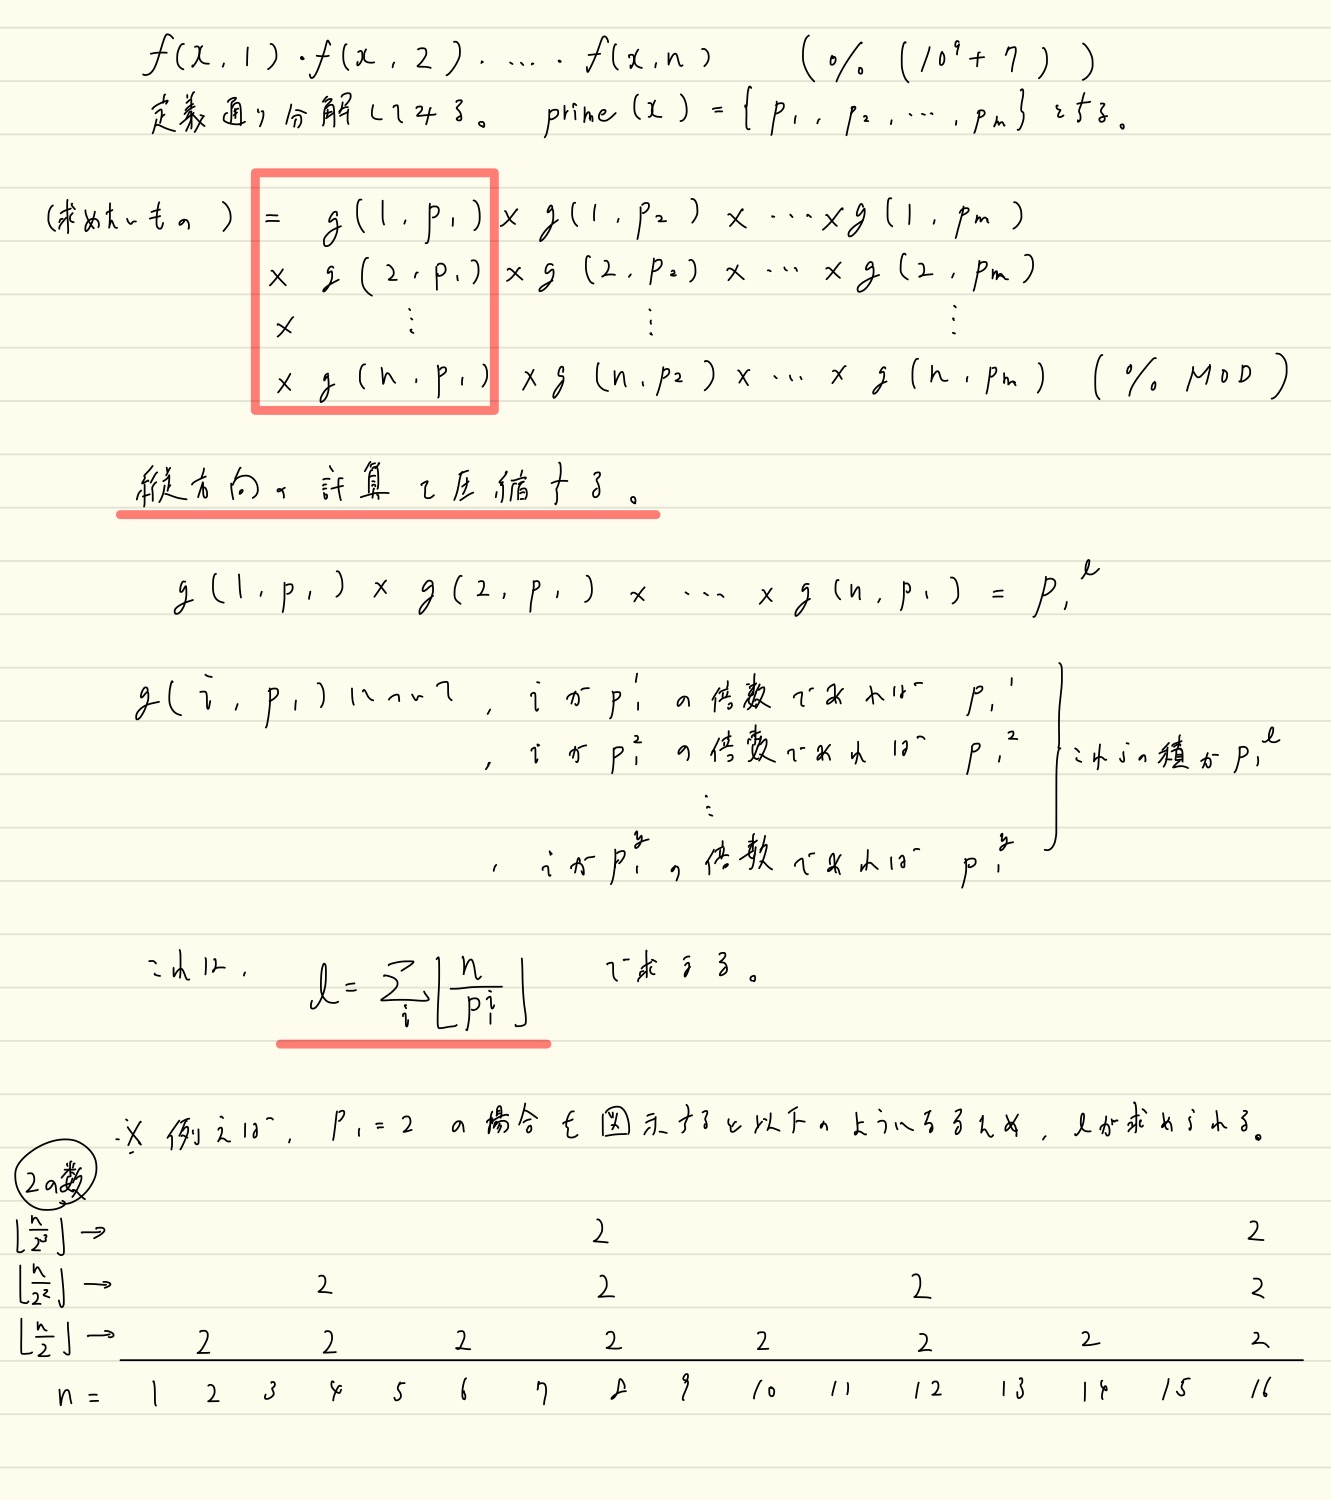 f(x,1)・f(x,2)・…・f(x,n) (% (10⁹+7))
定義通り分解してみる。 prime(x) = {p₁, p₂, …, pₘ}とする。
(求めたいもの) = g(1,p₁) × g(1,p₂) × … × g(1,pₘ)
× g(2,p₁) × g(2,p₂) × … × g(2,pₘ)
× ⋮ ⋮ ⋮
× g(n,p₁) × g(n,p₂) × … × g(n,pₘ) (% MOD)
縦方向の計算で圧縮する。
g(1,p₁) × g(2,p₁) × … × g(n,p₁) = p₁^l
g(i,p₁)について, iがp₁¹の倍数であれば p₁¹
, iがp₁²の倍数であれば p₁² これらの積がp₁^l
⋮
, iがp₁^yの倍数であれば p₁^y
これは, l = Σ_i ⌊n/p₁^i⌋ で求まる。
※ 例えば, p₁=2 の場合を図示すると以下のようになるため, lが求められる。
2の数
⌊n/2³⌋ → 2 2
⌊n/2²⌋ → 2 2 2 2
⌊n/2⌋ → 2 2 2 2 2 2 2 2
n = 1 2 3 4 5 6 7 8 9 10 11 12 13 14 15 16